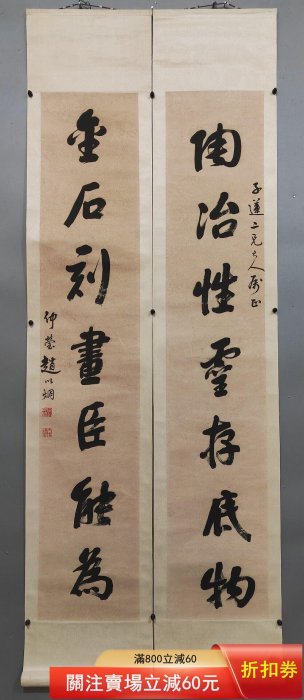 陶冶性靈存底物
子蓮二兄大人屬正
金石刻畫臣能為
仲瑩趙以烱
滿800立減60
關注賣場立減60元
折扣券